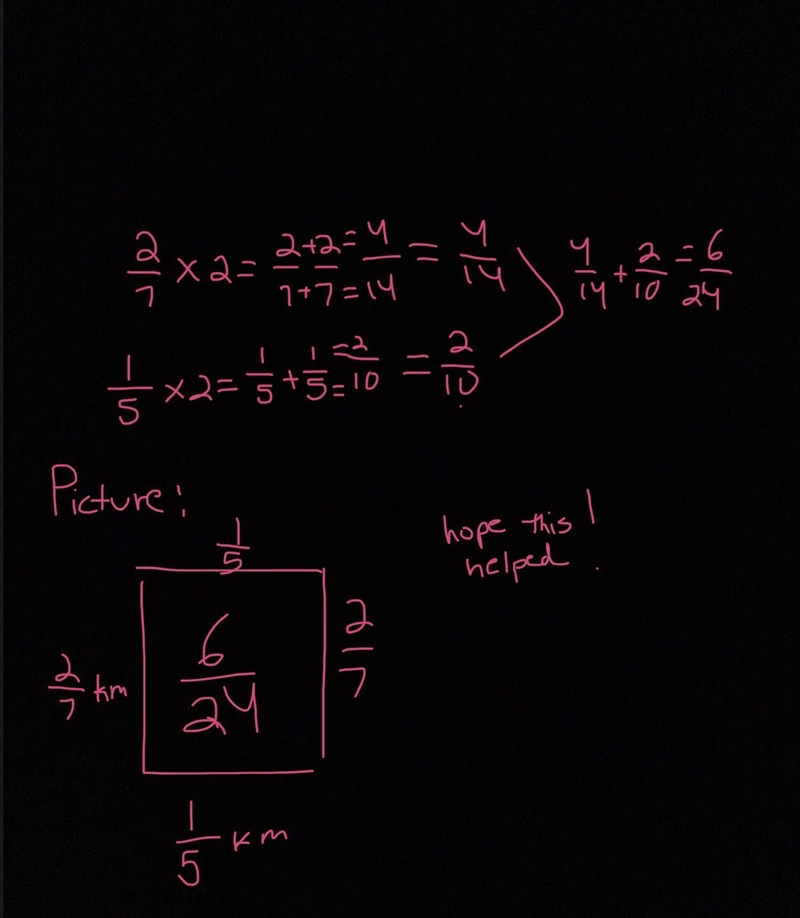 2/7 × 2 = 2/7 + 2/7 = 4/14 = 4/14
1/5 × 2 = 1/5 + 1/5 = 2/10 = 2/10
4/14 + 2/10 = 6/24
Picture:
1/5
2/7 km
6/24
2/7
1/5 km
hope this
helped !